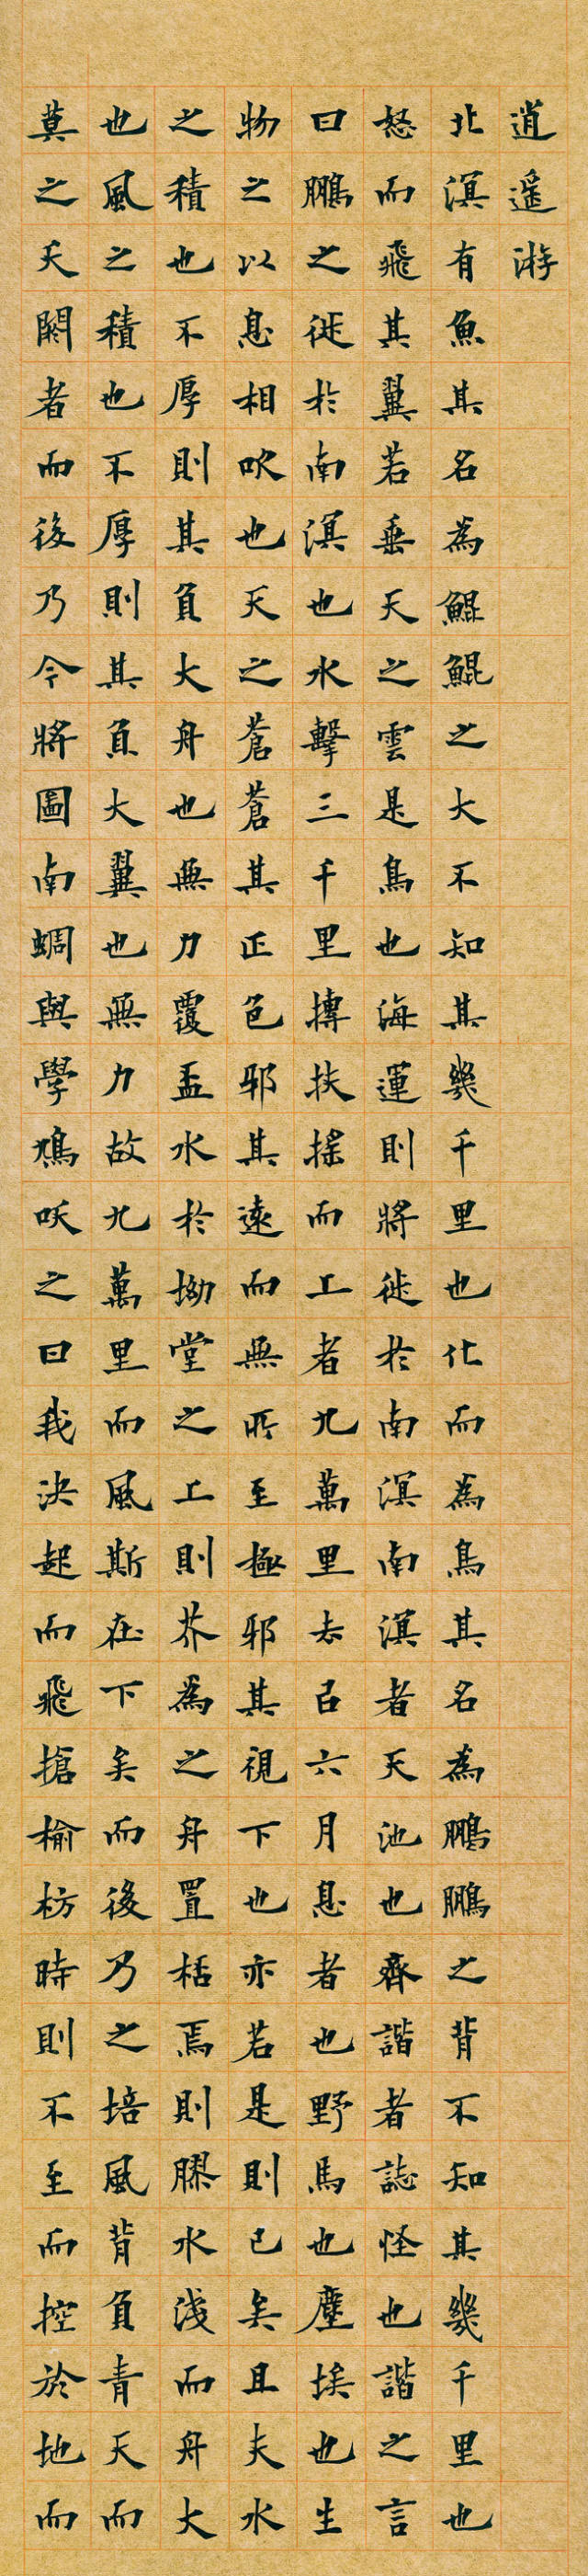 逍遙游
北溟有魚其名為鯤鯤之大不知其幾千里也化而為鳥其名為鵬鵬之背不知其幾千里也
怒而飛其翼若垂天之雲是鳥也海運則將徙於南溟南溟者天池也齊諧者誌怪也諧之言
曰鵬之徙於南溟也水擊三千里摶扶搖而上者九萬里去㠯六月息者也野馬也塵埃也生
物之以息相吹也天之蒼蒼其正色邪其遠而無所至極邪其視下也亦若是則已矣且夫水
之積也不厚則其負大舟也無力覆盃水於坳堂之上則芥為之舟置桮焉則膠水淺而舟大
也風之積也不厚則其負大翼也無力故九萬里而風斯在下矣而後乃之培風背負青天而
莫之夭閼者而後乃今將圖南蜩與學鳩咲之曰我決起而飛搶榆枋時則不至而控於地而